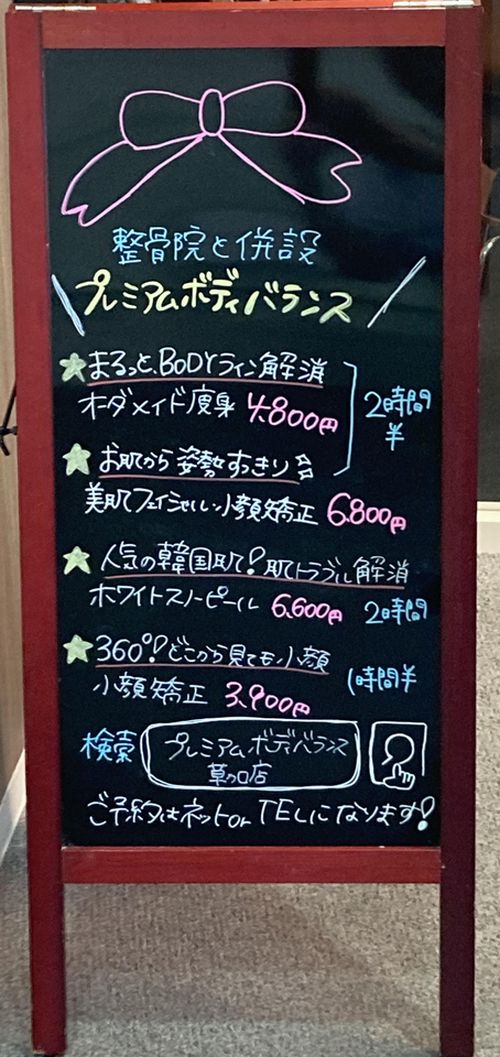 整骨院と併設
プレミアムボディバランス
まるっとBODYライン解消
オーダメイド痩身 4,800円
2時間半
お肌から姿勢すっきり
美肌フェイシャル・小顔矯正 6,800円
人気の韓国肌!肌トラブル解消
ホワイトスノーピール 6,600円 2時間
360°!どこから見ても小顔
小顔矯正 3,900円 1時間半
検索 プレミアムボディバランス
店
ご予約はネットor TELになります!